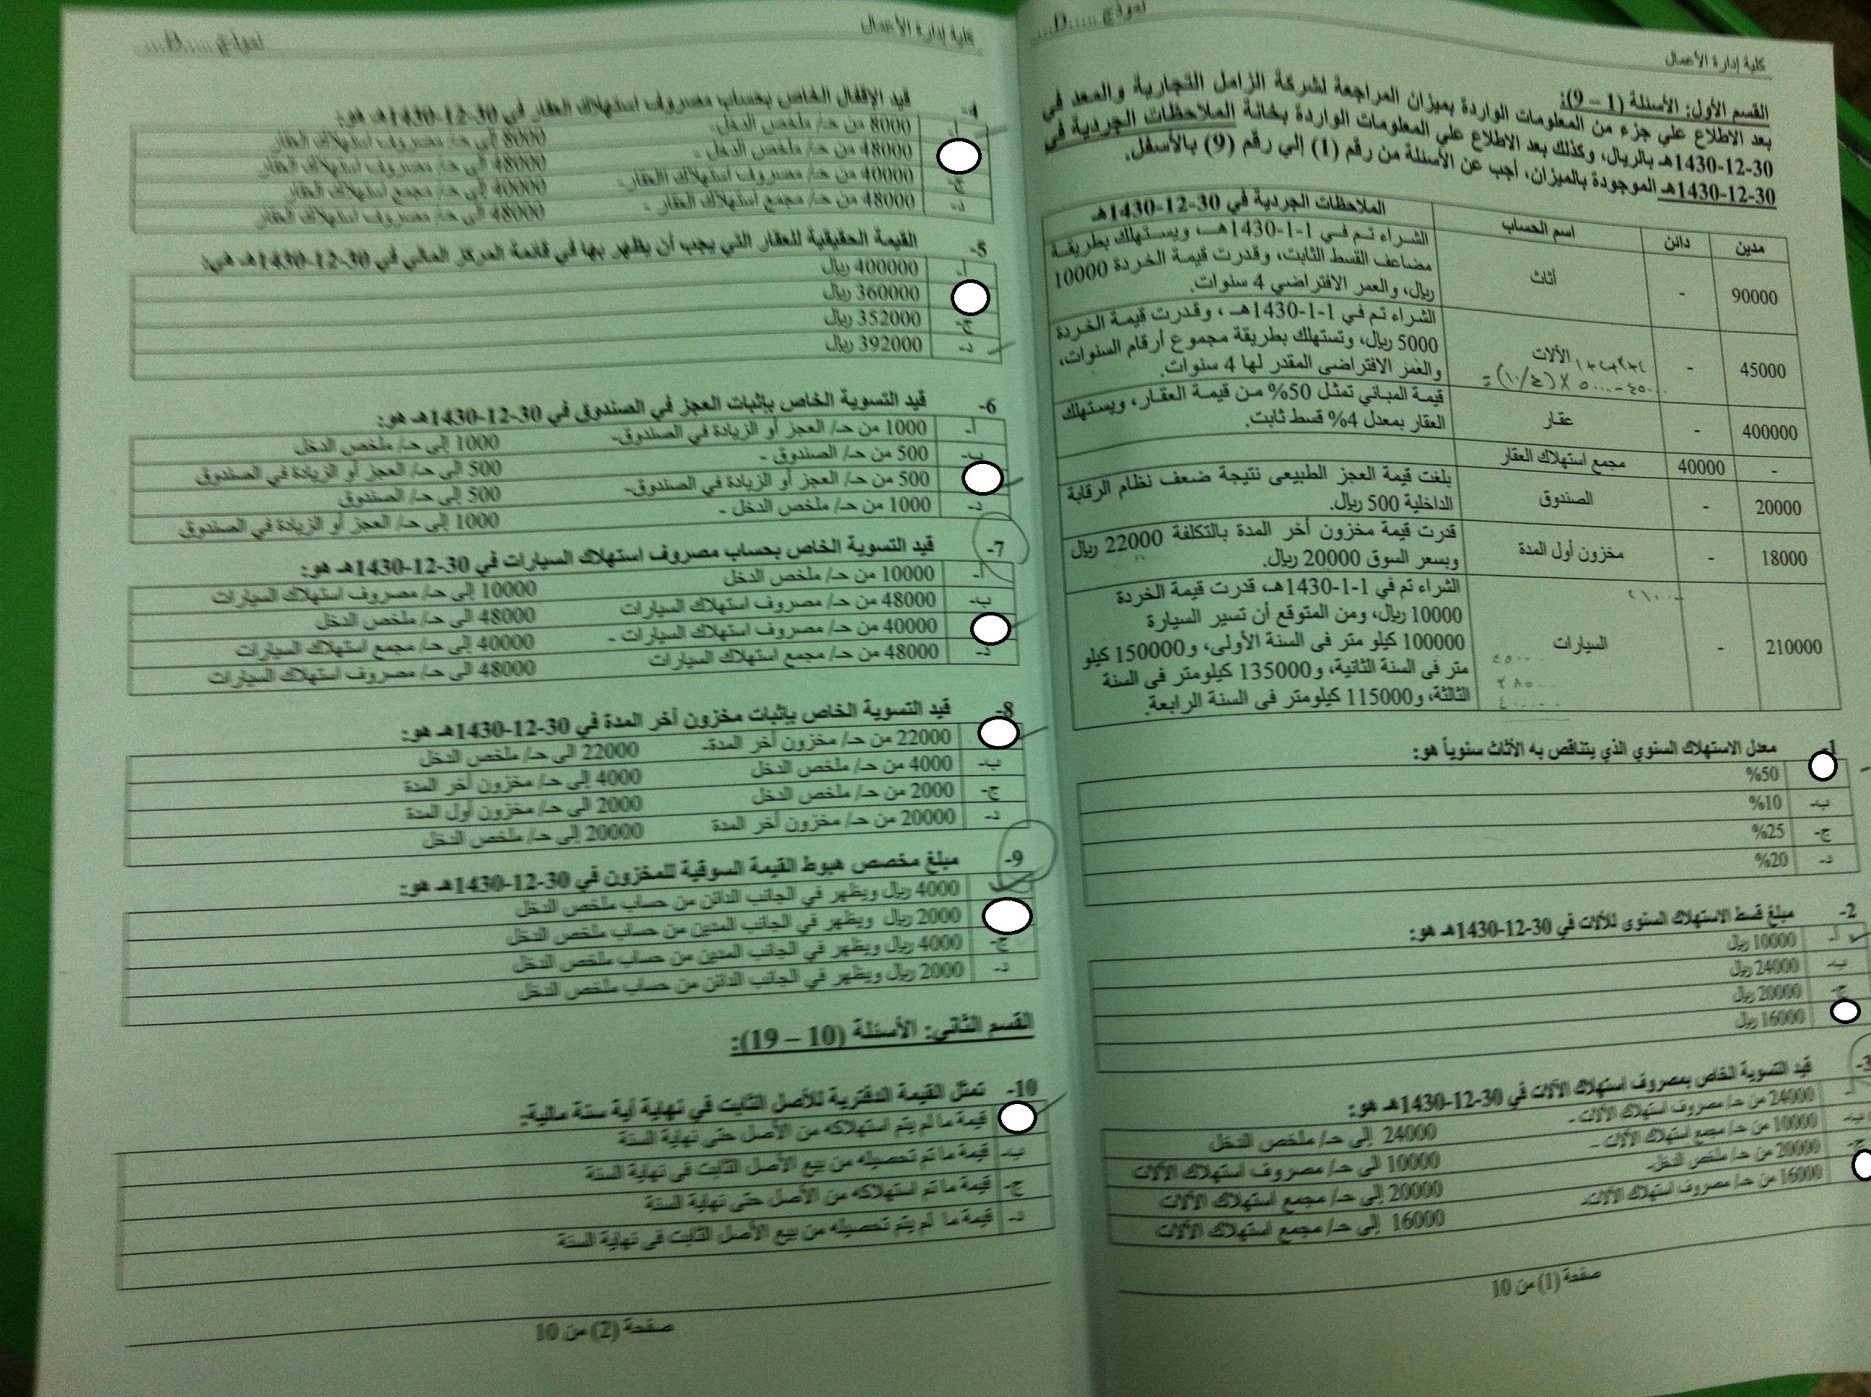 كلية إدارة الأعمال
نموذج.....D.....
القسم الأول: الأسئلة (1 – 9):
بعد الاطلاع علي جزء من المعلومات الواردة بميزان المراجعة لشركة الزامل التجارية والمعد في
30-12-1430هـ بالريال، وكذلك بعد الاطلاع علي المعلومات الواردة بخانة الملاحظات الجردية في
30-12-1430هـ الموجودة بالميزان، أجب عن الأسئلة من رقم (1) إلي رقم (9) بالأسفل.
مدين دائن اسم الحساب الملاحظات الجردية في 30-12-1430هـ
90000 - أثاث الشراء تم في 1-1-1430هـ، ويستهلك بطريقة
مضاعف القسط الثابت، وقدرت قيمة الخردة 10000
ريال، والعمر الافتراضي 4 سنوات.
45000 - الآلات الشراء تم في 1-1-1430هـ، وقدرت قيمة الخردة
5000 ريال، وتستهلك بطريقة مجموع أرقام السنوات،
والعمر الافتراضى المقدر لها 4 سنوات.
١+٢+٣+٤
٤٥٠٠٠-٥٠٠٠ × (٤/١٠) =
400000 - عقار قيمة المباني تمثل 50% من قيمة العقار، ويستهلك
العقار بمعدل 4% قسط ثابت.
- 40000 مجمع استهلاك العقار
20000 - الصندوق بلغت قيمة العجز الطبيعى نتيجة ضعف نظام الرقابة
الداخلية 500 ريال.
18000 - مخزون أول المدة قدرت قيمة مخزون أخر المدة بالتكلفة 22000 ريال
وبسعر السوق 20000 ريال.
210000 - السيارات الشراء تم في 1-1-1430هـ، قدرت قيمة الخردة
10000 ريال، ومن المتوقع أن تسير السيارة
100000 كيلو متر فى السنة الأولى، و150000 كيلو
متر فى السنة الثانية، و135000 كيلومتر فى السنة
الثالثة، و115000 كيلومتر فى السنة الرابعة.
1- معدل الاستهلاك السنوي الذي يتناقص به الأثاث سنوياً هو:
50%
ب- 10%
ج- 25%
د- 20%
2- مبلغ قسط الاستهلاك السنوى للآلات في 30-12-1430هـ هو:
أ- 10000 ريال
ب- 24000 ريال
ج- 20000 ريال
16000 ريال
3- قيد التسوية الخاص بمصروف استهلاك الآلات في 30-12-1430هـ هو:
أ- 24000 من حـ/ مصروف استهلاك الآلات - 24000 إلى حـ/ ملخص الدخل
ب- 10000 من حـ/ مجمع استهلاك الآلات - 10000 الى حـ/ مصروف استهلاك الآلات
ج- 20000 من حـ/ ملخص الدخل- 20000 إلى حـ/ مجمع استهلاك الآلات
16000 من حـ/ مصروف استهلاك الآلات- 16000 إلى حـ/ مجمع استهلاك الآلات
صفحة (1) من 10
كلية إدارة الأعمال
نموذج.....D.....
4- قيد الإقفال الخاص بحساب مصروف استهلاك العقار في 30-12-1430هـ هو:
أ- 8000 من حـ/ ملخص الدخل- 8000 إلى حـ/ مصروف استهلاك العقار
48000 من حـ/ ملخص الدخل - 48000 الى حـ/ مصروف استهلاك العقار
ج- 40000 من حـ/ مصروف استهلاك العقار- 40000 إلى حـ/ مجمع استهلاك العقار
د- 48000 من حـ/ مجمع استهلاك العقار - 48000 الى حـ/ مصروف استهلاك العقار
5- القيمة الحقيقية للعقار التي يجب أن يظهر بها في قائمة المركز المالي في 30-12-1430هـ هي:
أ- 400000 ريال
360000 ريال
ج- 352000 ريال
د- 392000 ريال
6- قيد التسوية الخاص بإثبات العجز في الصندوق في 30-12-1430هـ هو:
أ- 1000 من حـ/ العجز أو الزيادة في الصندوق- 1000 إلى حـ/ ملخص الدخل
ب- 500 من حـ/ الصندوق - 500 الى حـ/ العجز أو الزيادة في الصندوق
500 من حـ/ العجز أو الزيادة في الصندوق- 500 إلى حـ/ الصندوق
د- 1000 من حـ/ ملخص الدخل - 1000 إلى حـ/ العجز أو الزيادة في الصندوق
7- قيد التسوية الخاص بحساب مصروف استهلاك السيارات في 30-12-1430هـ هو:
أ- 10000 من حـ/ ملخص الدخل 10000 إلى حـ/ مصروف استهلاك السيارات
ب- 48000 من حـ/ مصروف استهلاك السيارات 48000 الى حـ/ ملخص الدخل
40000 من حـ/ مصروف استهلاك السيارات - 40000 إلى حـ/ مجمع استهلاك السيارات
د- 48000 من حـ/ مجمع استهلاك السيارات 48000 الى حـ/ مصروف استهلاك السيارات
8- قيد التسوية الخاص بإثبات مخزون أخر المدة في 30-12-1430هـ هو:
22000 من حـ/ مخزون أخر المدة- 22000 الى حـ/ ملخص الدخل
ب- 4000 من حـ/ ملخص الدخل 4000 إلى حـ/ مخزون أخر المدة
ج- 2000 من حـ/ ملخص الدخل 2000 الى حـ/ مخزون أول المدة
د- 20000 من حـ/ مخزون أخر المدة 20000 إلى حـ/ ملخص الدخل
9- مبلغ مخصص هبوط القيمة السوقية للمخزون في 30-12-1430هـ هو:
4000 ريال ويظهر في الجانب الدائن من حساب ملخص الدخل
2000 ريال ويظهر في الجانب المدين من حساب ملخص الدخل
ج- 4000 ريال ويظهر في الجانب المدين من حساب ملخص الدخل
د- 2000 ريال ويظهر في الجانب الدائن من حساب ملخص الدخل
القسم الثاني: الأسئلة (10 – 19):
10- تمثل القيمة الدفترية للأصل الثابت في نهاية أية سنة مالية:
قيمة ما لم يتم استهلاكه من الأصل حتى نهاية السنة
ب- قيمة ما تم تحصيله من بيع الأصل الثابت في نهاية السنة
ج- قيمة ما تم استهلاكه من الأصل حتى نهاية السنة
د- قيمة ما لم يتم تحصيله من بيع الأصل الثابت في نهاية السنة
صفحة (2) من 10